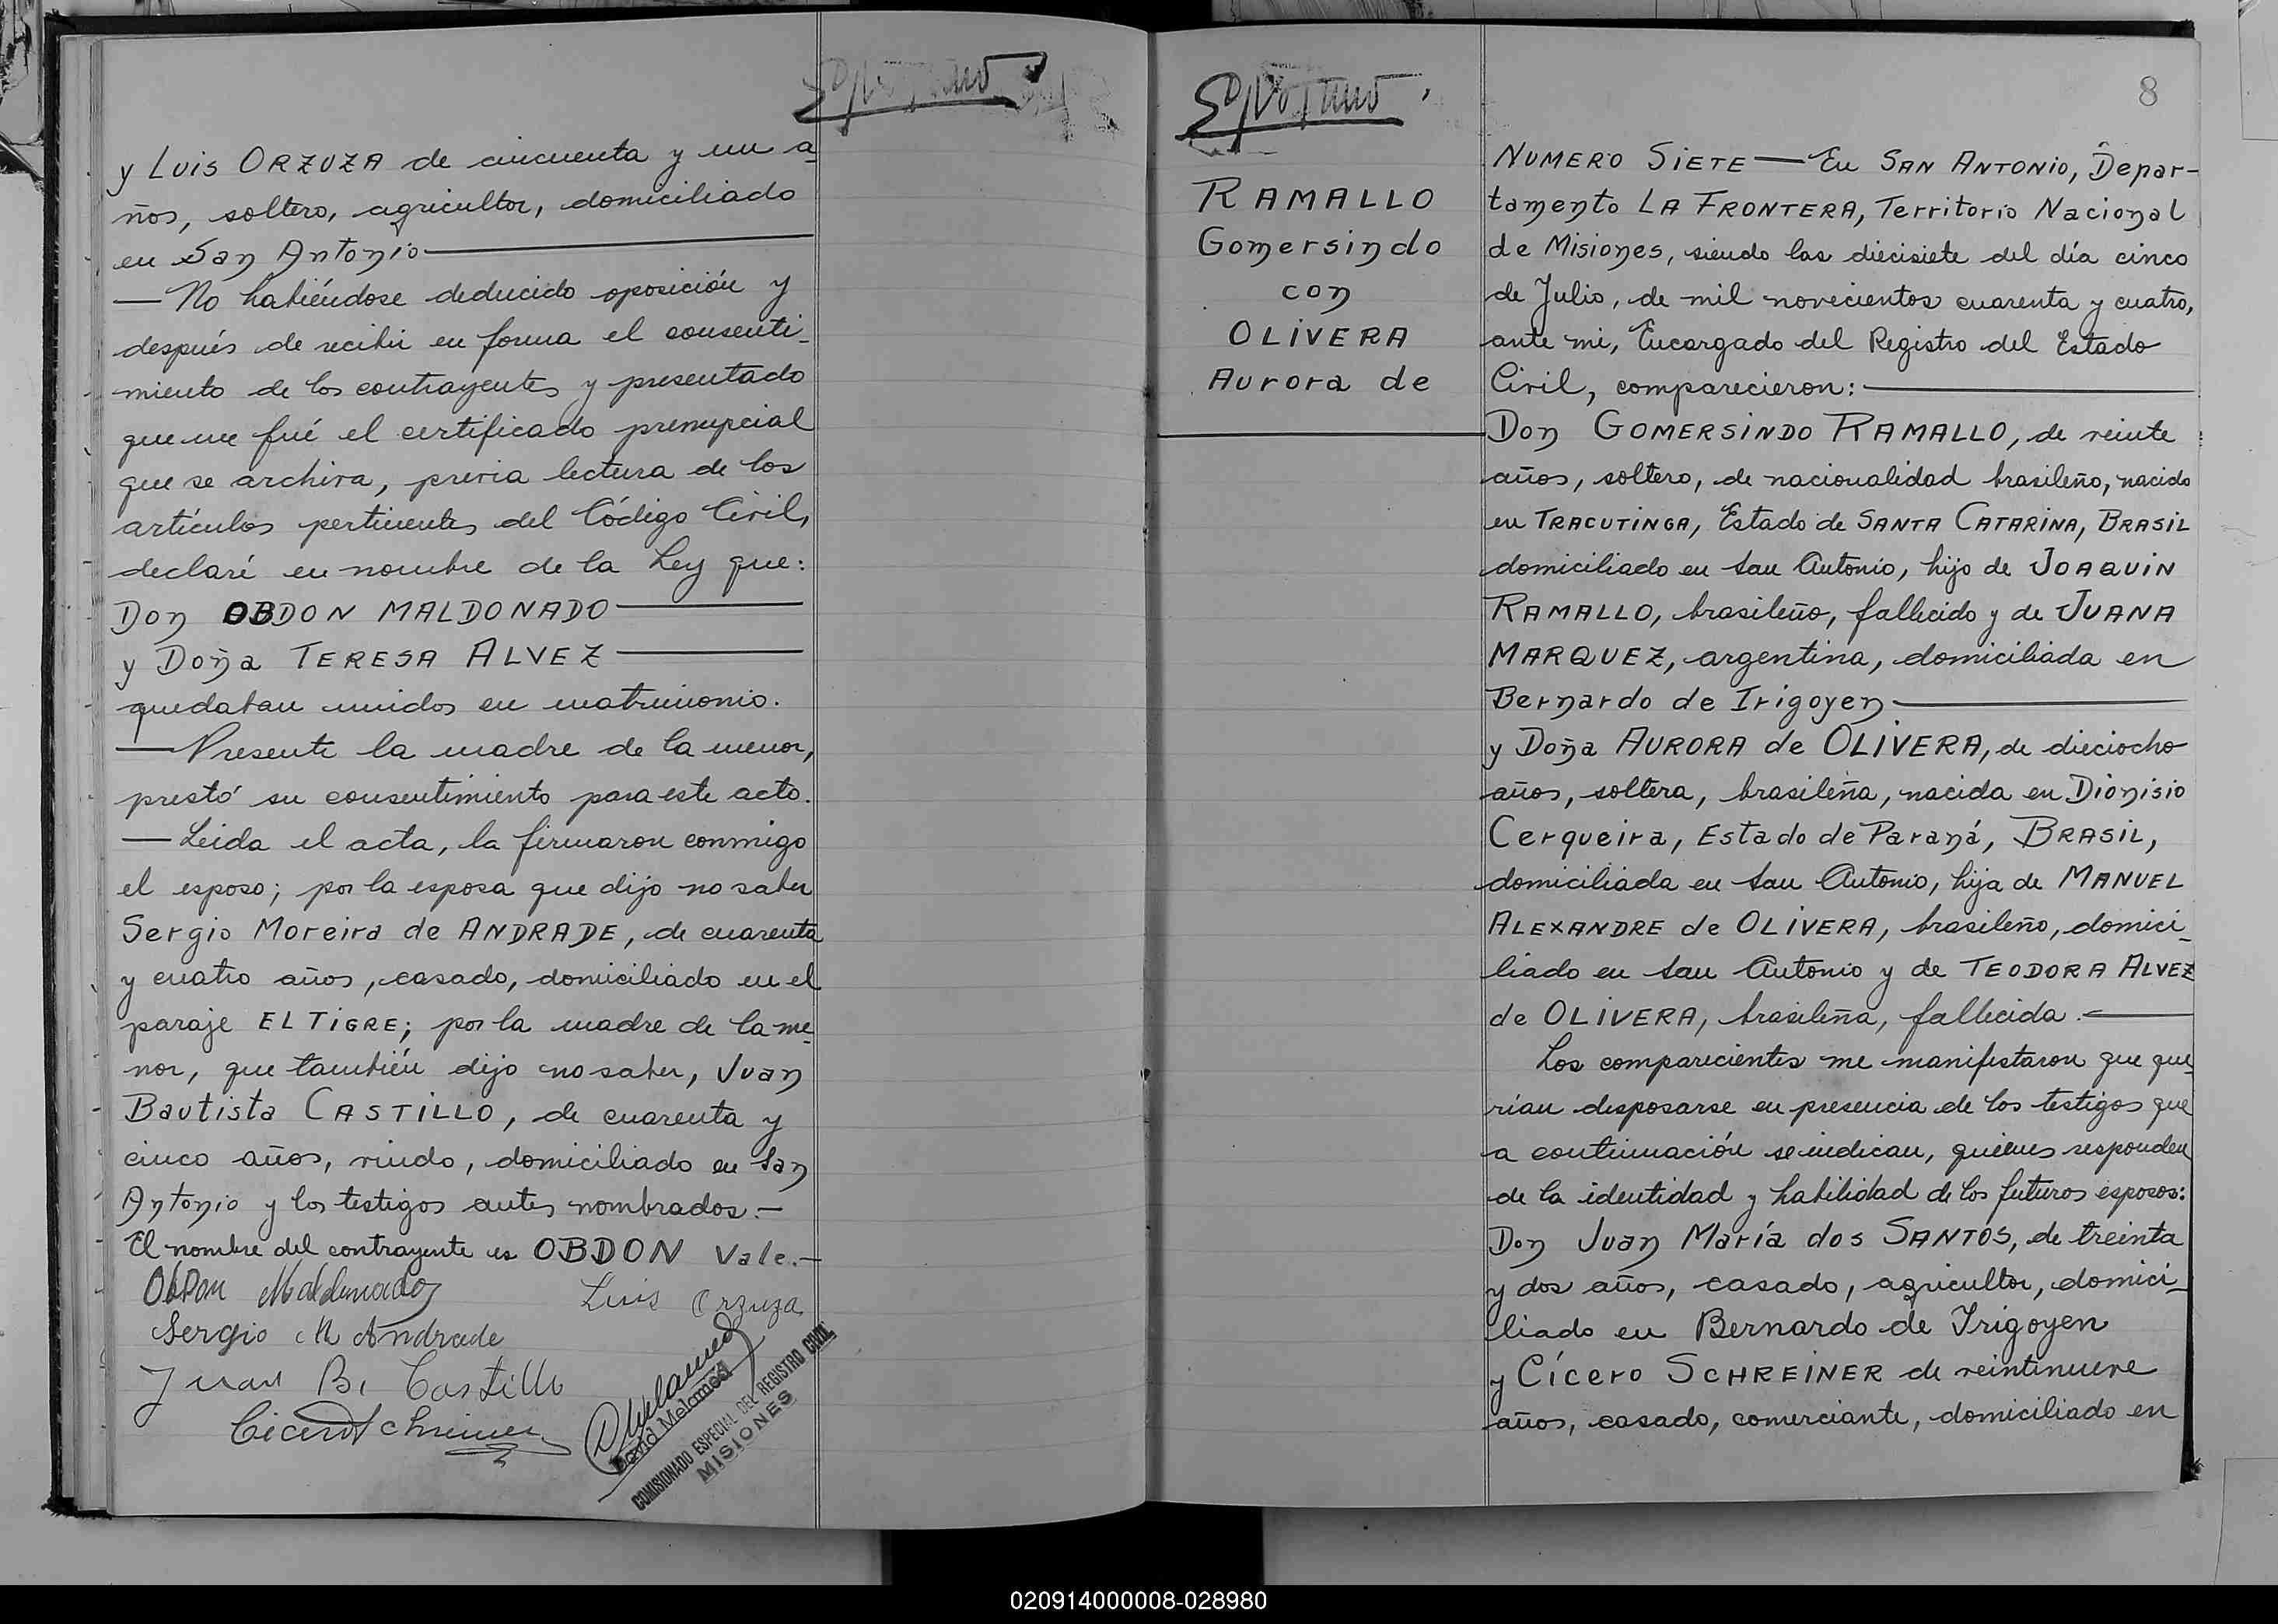 y Luis ORZUZA de cincuenta y un a-
ños, soltero, agricultor, domiciliado
en San Antonio
— No habiéndose deducido oposición y
después de recibir en forma el consenti-
miento de los contrayentes y presentado
que me fué el certificado prenupcial
que se archiva, previa lectura de los
artículos pertinentes del Código Civil,
declaré en nombre de la Ley que:
Don OBDON MALDONADO
y Doña TERESA ALVEZ
quedaban unidos en matrimonio.
— Presente la madre de la menor,
prestó su consentimiento para este acto.
— Leida el acta, la firmaron conmigo
el esposo; por la esposa que dijo no saber
Sergio Moreira de ANDRADE, de cuarenta
y cuatro años, casado, domiciliado en el
paraje EL TIGRE; por la madre de la me-
nor, que también dijo no saber, Juan
Bautista CASTILLO, de cuarenta y
cinco años, viudo, domiciliado en San
Antonio y los testigos antes nombrados.—
El nombre del contrayente es OBDON Vale.—
Obdon Maldonado Luis Orzuza
Sergio M Andrade
Juan B. Castillo
Cicero Schreiner
David Melamed
COMISIONADO ESPECIAL DEL REGISTRO CIVIL
MISIONES
RAMALLO
Gomersindo
con
OLIVERA
Aurora de
8
NUMERO SIETE — En SAN ANTONIO, Depar-
tamento LA FRONTERA, Territorio Nacional
de Misiones, siendo las diecisiete del día cinco
de Julio, de mil novecientos cuarenta y cuatro,
ante mi, Encargado del Registro del Estado
Civil, comparecieron:
Don GOMERSINDO RAMALLO, de veinte
años, soltero, de nacionalidad brasileño, nacido
en TRACUTINGA, Estado de SANTA CATARINA, BRASIL
domiciliado en San Antonio, hijo de JOAQUIN
RAMALLO, brasileño, fallecido y de JUANA
MARQUEZ, argentina, domiciliada en
Bernardo de Irigoyen
y Doña AURORA de OLIVERA, de dieciocho
años, soltera, brasileña, nacida en Dionisio
Cerqueira, Estado de Paraná, BRASIL,
domiciliada en San Antonio, hija de MANUEL
ALEXANDRE de OLIVERA, brasileño, domici-
liado en San Antonio y de TEODORA ALVEZ
de OLIVERA, brasileña, fallecida.
Los comparecientes me manifestaron que que-
rían desposarse en presencia de los testigos que
a continuación se indican, quienes responden
de la identidad y habilidad de los futuros esposos:
Don Juan María dos SANTOS, de treinta
y dos años, casado, agricultor, domici-
liado en Bernardo de Irigoyen
y Cícero SCHREINER de veintinueve
años, casado, comerciante, domiciliado en
020914000008-028980